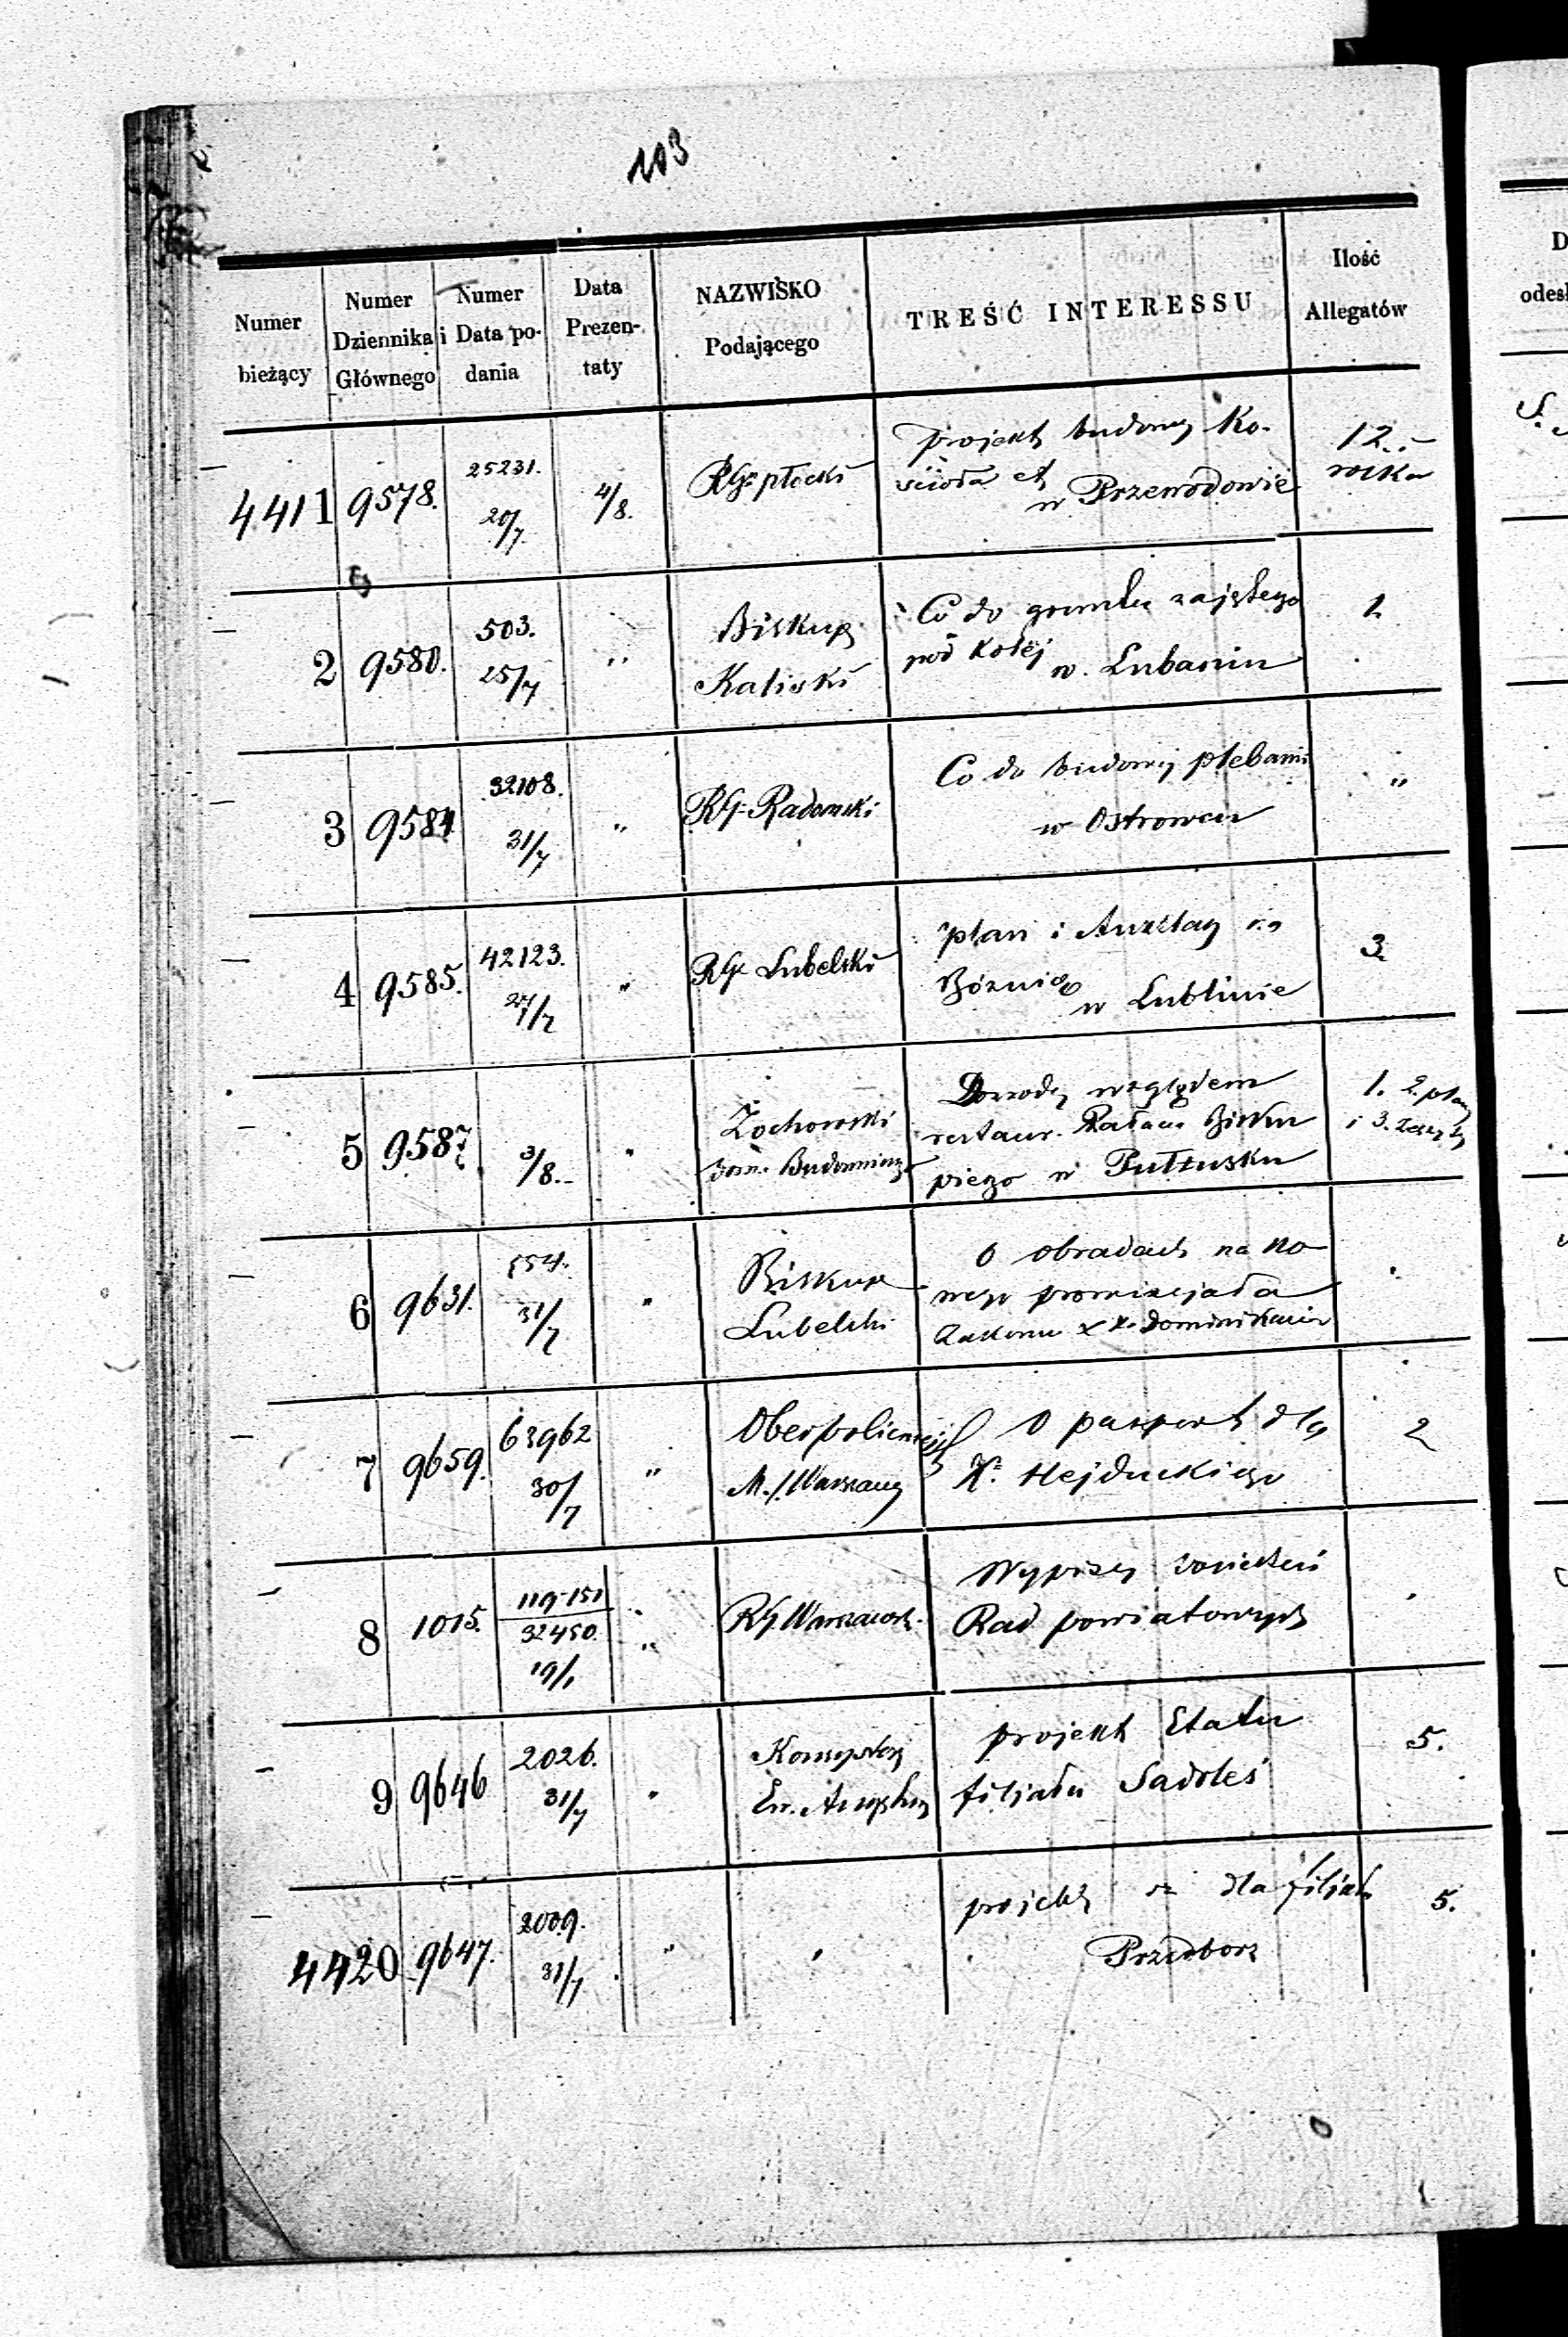 103
Numer bieżący
Numer Dziennika Głównego
Numer i Data podania
Data Prezentaty
NAZWISKO Podającego
TREŚĆ INTERESSU
Ilość Allegatów
4411 9578. 25231. 20/7 4/8. RG płocki
projekt budowy Ko-
ścioła
w Przewodowie
12.
2 9580. 503. 25/7 " Biskup
Kaliski
Co do gruntu zajętego
pod kolej
w. Lubaniu
1
3 9584 32108. 31/7 " RG Radomski
Co do budowy plebanii
w Ostrowcu
"
4 9585. 42123. 27/7 " RG Lubelski
plan i Anszlag
Bóżnicy
w Lublinie
3
5 9587. 3/8. " Żochowski
Bud.
Dowody względem
restaur. Pałacu Bisku
piego w Pułtusku
1. 2. plany
i 3.
6 9631. 554. 31/7 " Biskup
Lubelski
O obradach na no
wego prowincjała
Zakonu Dominikanów
7 9659. 63962 30/7 " Oberpolicm
M. Warszawy
O paszport dla
X. Hejduckiego
2
8 1015. 119-151 32450. 19/1 " RG Warszawsk.
Wypisy
Rad powiatowych
9 9646 2026. 31/7 " Konsystorz
Ew. Augsburg
projekt Etatu
filjału Sadoleś
5.
4420 9647. 2009. 31/7 " "
projekt dla filjału
Przedborz
5.
D
odes